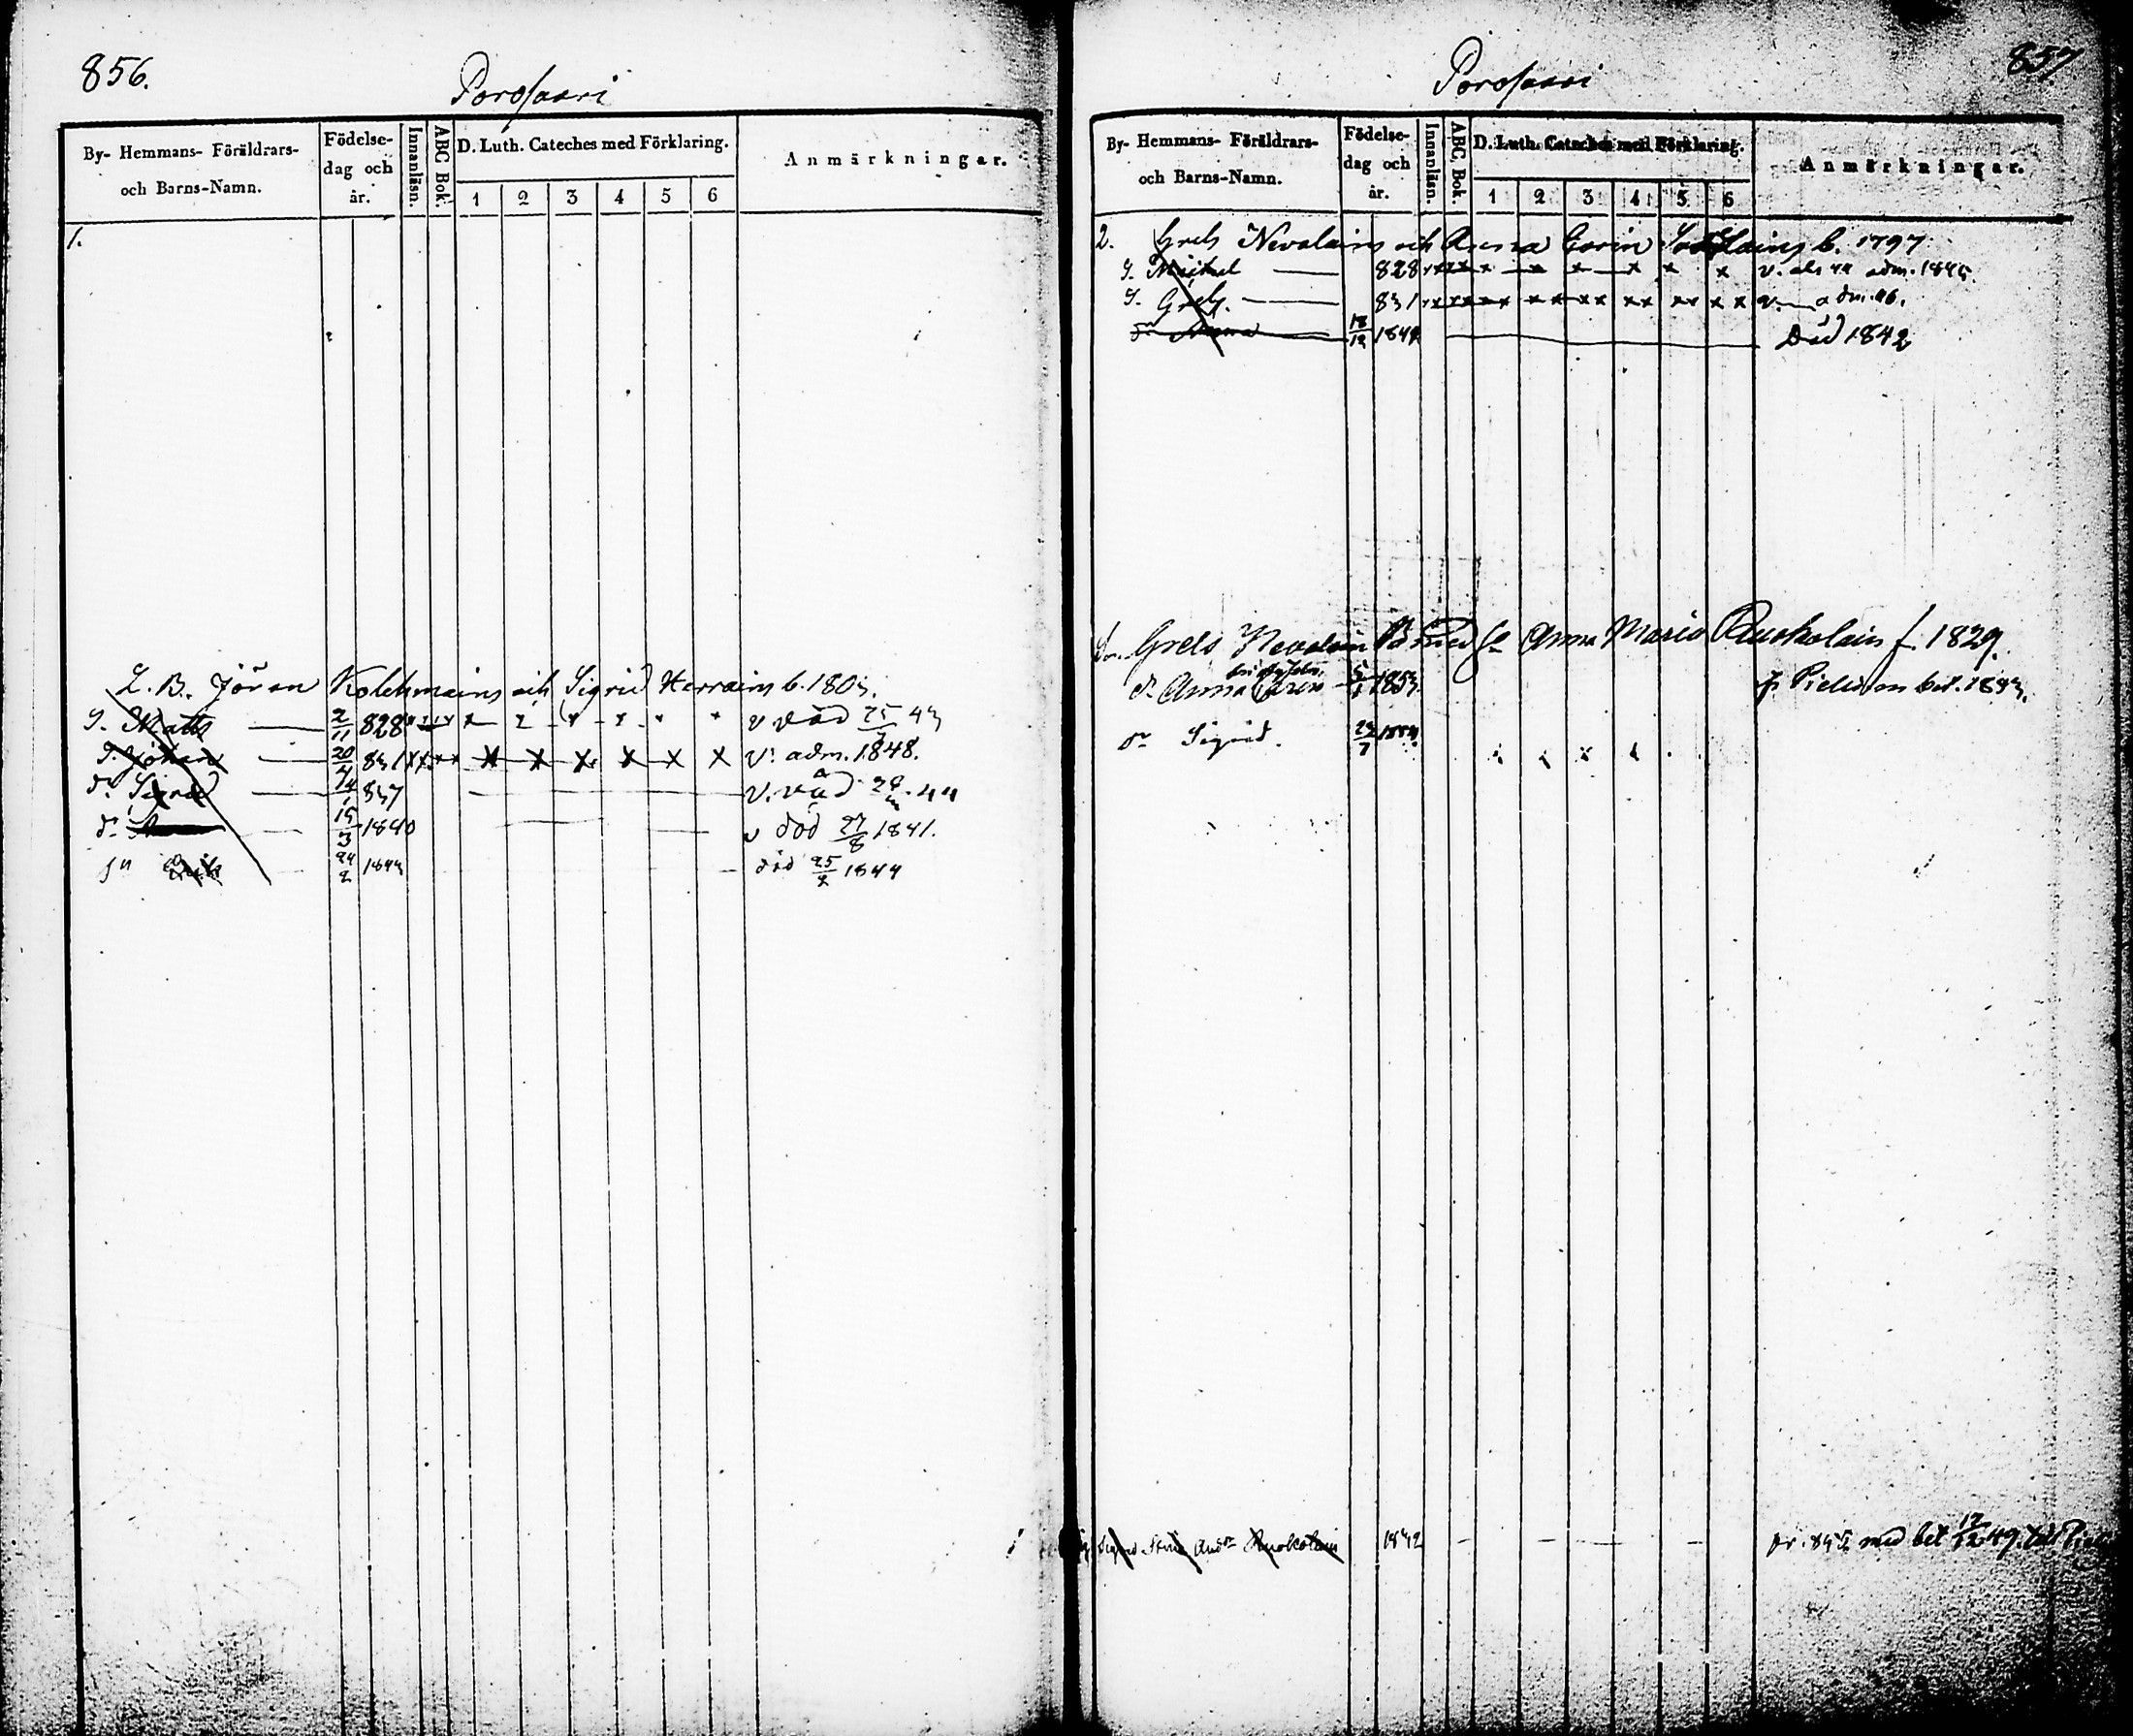 856.
Porosaari
By- Hemmans- Föräldrars- och Barns-Namn.
Födelse- dag och år.
Innanläsn.
ABC Bok.
D. Luth. Cateches med Förklaring.
1 2 3 4 5 6
Anmärkningar.
1.
L. B. Jöran Kolehmains och Sigrid Herrains b. 1803.
S. Matts 2/11 828 x x x x x x v död 25 43
S. Johan 20/4 831 x x x x x x v. adm. 1848.
dr Sigrid 14/1 837 v. död 28 . 44
dr 15/3 1840 v död 27/8 1841.
sn Erik 24/2 1844 död 25/2 1844
857
Porosaari
By- Hemmans- Föräldrars- och Barns-Namn.
Födelse- dag och år.
Innanläsn.
ABC Bok.
D. Luth. Cateches med Förklaring.
1 2 3 4 5 6
Anmärkningar.
2. Grels Nevalains och Anna Carin b. 1797
S. Michel 828 x x x x x x v. adm. 1845
S. Grels. 831 xx xx xx xx xx xx v adm. 46.
dr Anna 18/12 1842 Död 1842
Grels Nevalain Anna Maria Ruokolain f. 1829.
dr Anna Carin 5/1 1853 Pielis m bet. 1893.
dr Sigrid. 29/7
Sigrid Stina Andr Ruokolain 1842 med bet 12/12 49.